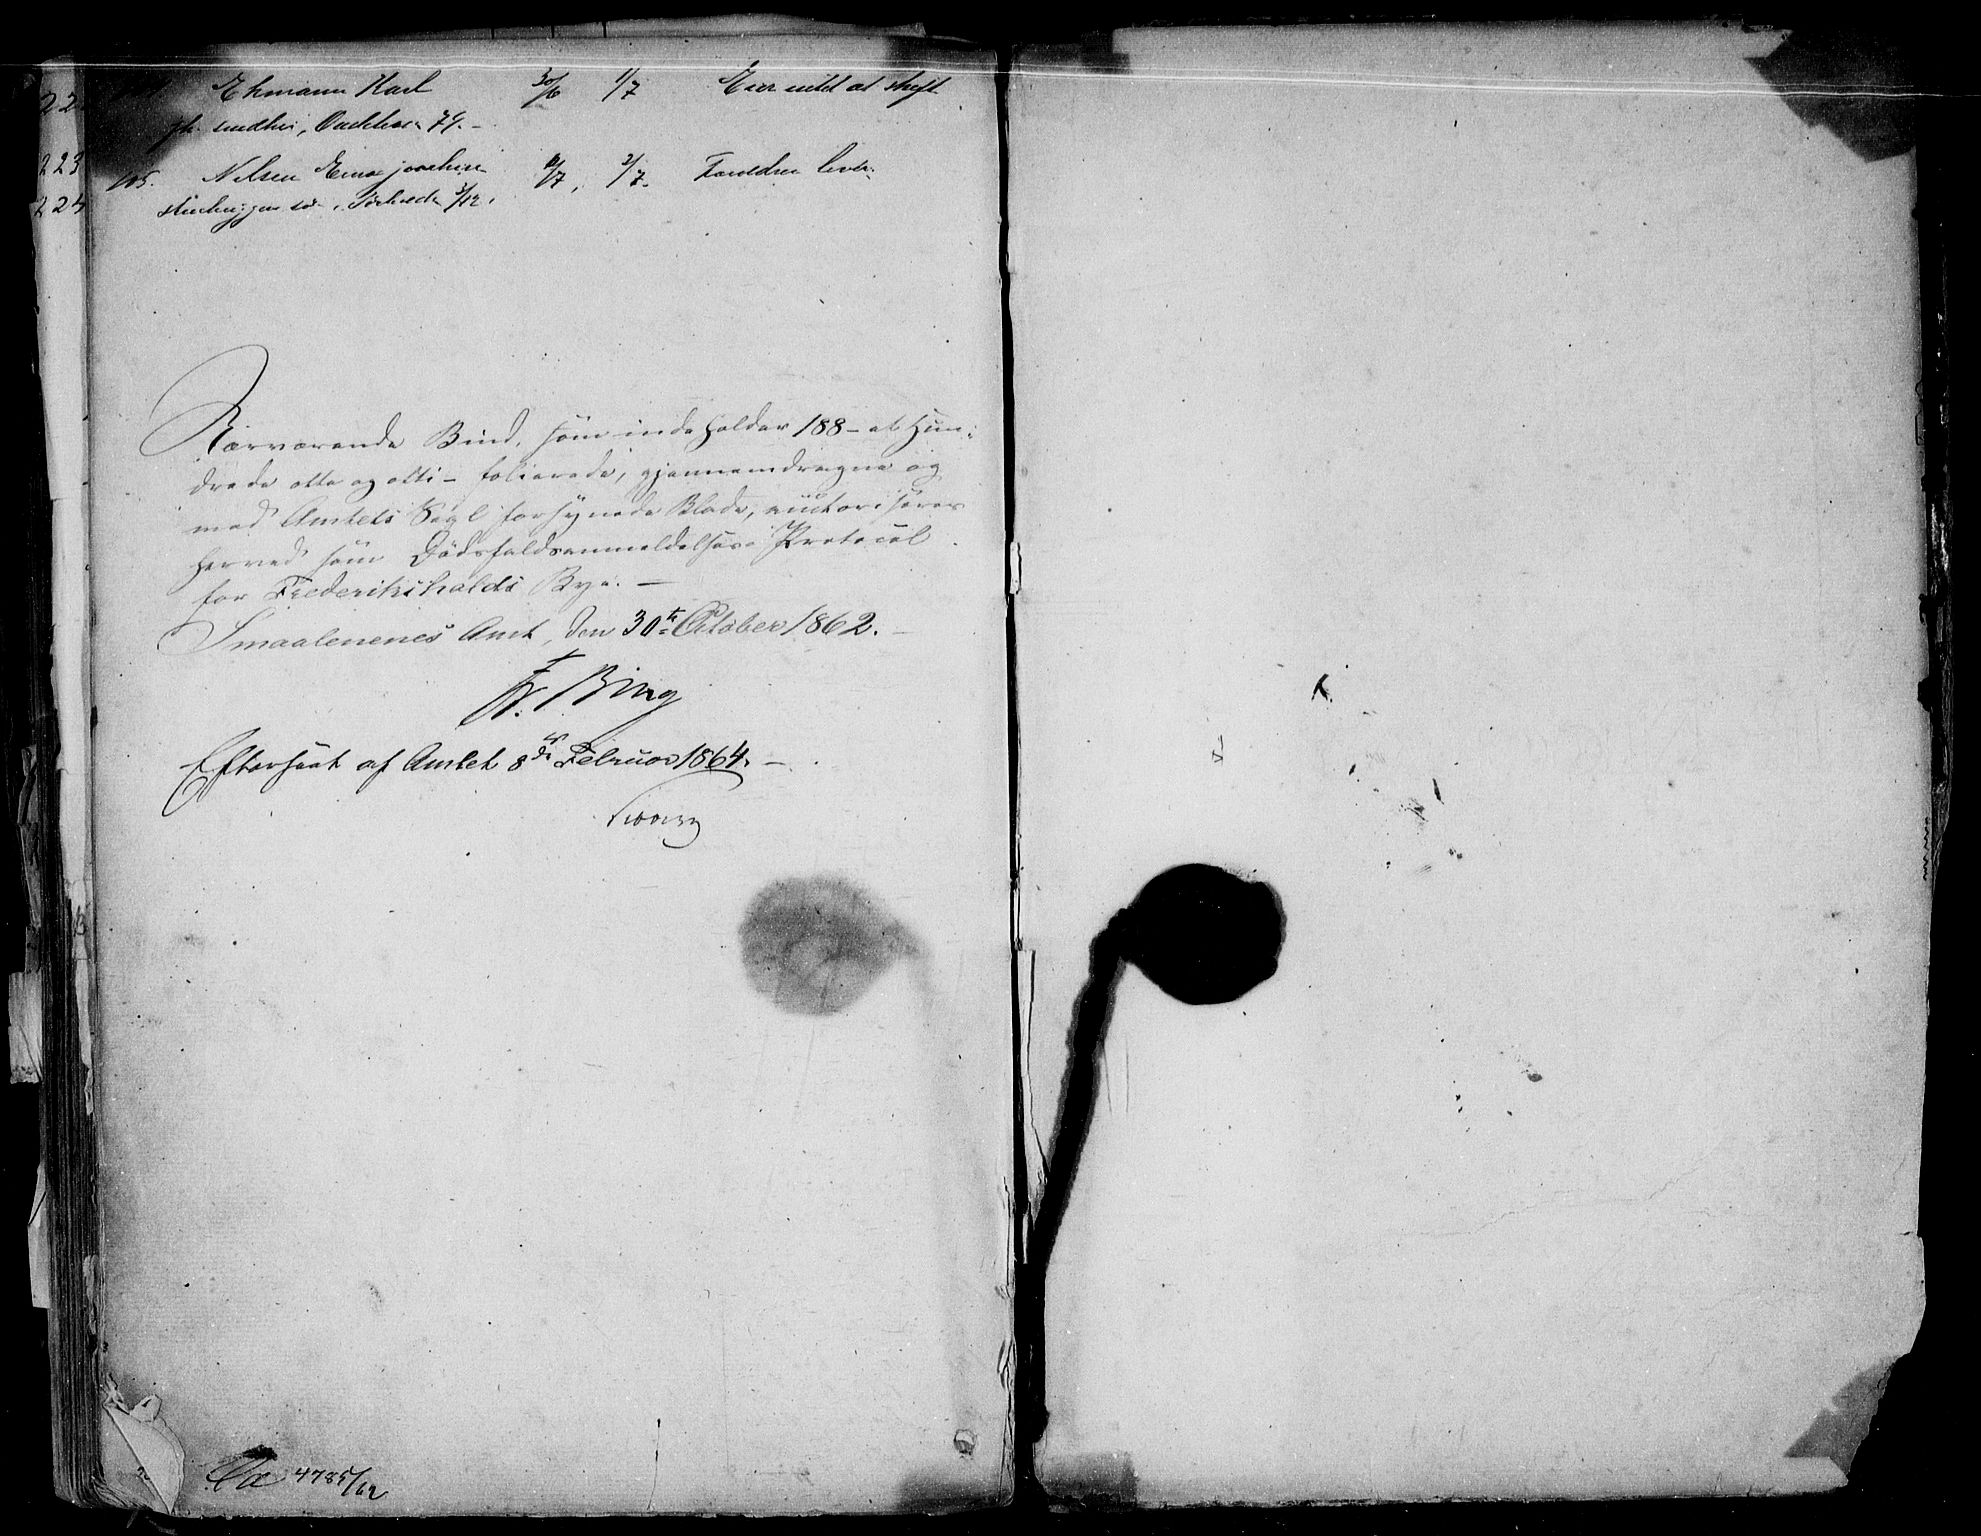 22
Ehmann Karl 30/6 1/7 Eier intet at skift
74.
223
105. Nilsen 2/7. Foreldre lever.
224
3/12.
Nærværende Bind, som indeholder 188 – et Hun-
drede otte og otti – folierede, gjennemdragne og
med Amtets Segl forsynede Blade, autoriseres
herved som Dødsfaldsanmeldelses-Protocol
for Frederikshalds Bye. –
Smaalenenes Amt, den 30te October 1862. –
Fr. Bing
Efterseet af Amtet 8de Februar 1864. –
4785/62